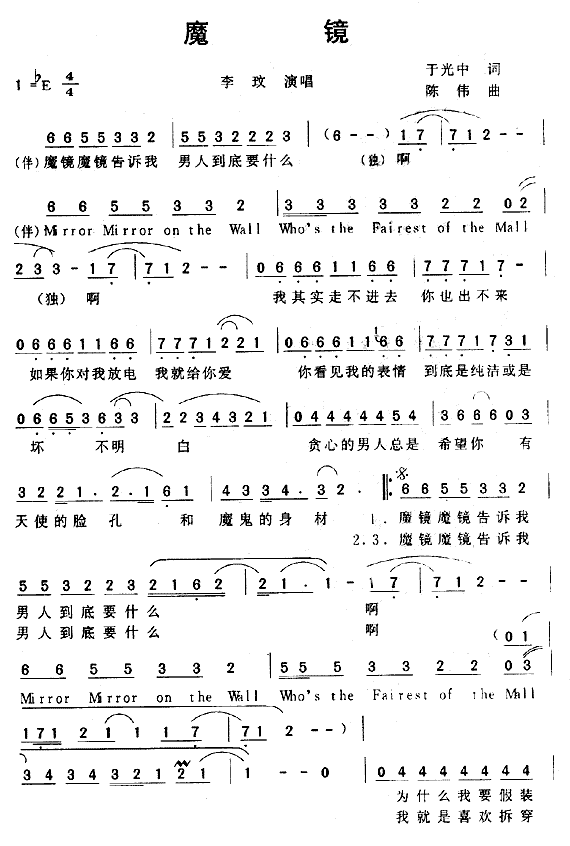 魔 镜
1=♭E 4/4 李 玟 演唱 于光中 词
陈 伟 曲
6 6 5 5 3 3 2 | 5 5 3 2 2 2 3 | ( 6 - - ) 1 7 | 7 1 2 - - |
(伴) 魔镜魔镜告诉我 男人到底要什么 (独) 啊
6 6 5 5 3 3 2 | 3 3 3 3 2 2 0 2 |
(伴) Mirror Mirror on the Wall Who's the Fairest of the Mall
2 3 3 - 1 7 | 7 1 2 - - | 0 6 6 6 1 1 6 6 | 7 7 7 1 7 - |
(独) 啊 我其实走不进去 你也出不来
0 6 6 6 1 1 6 6 | 7 7 7 1 2 2 1 | 0 6 6 6 1 1 6 6 | 7 7 7 1 7 3 1 |
如果你对我放电 我就给你爱 你看见我的表情 到底是纯洁或是
0 6 6 5 3 6 3 3 | 2 2 3 4 3 2 1 | 0 4 4 4 4 4 5 4 | 3 6 6 6 0 3 |
坏 不明 白 贪心的男人总是 希望你 有
3 2 2 1 . 2 . 1 6 1 | 4 3 3 4 . 3 2 | 2 - - . ‖: 6 6 5 5 3 3 2 |
天使的脸 孔 和 魔鬼的身 材 1. 魔镜魔镜告诉我
2.3. 魔镜魔镜告诉我
5 5 3 2 2 3 2 1 6 2 | 2 1 . 1 - | - 1 7 | 7 1 2 - - |
男人到底要什么 啊
男人到底要什么 啊 ( 0 1
6 6 5 5 3 3 2 | 5 5 5 3 3 2 2 0 3 |
Mirror Mirror on the Wall Who's the Fairest of the Mall
1 7 1 2 1 1 1 7 | 7 1 2 - - ) |
3 4 3 4 3 2 1 2 1 | 1 - - 0 | 0 4 4 4 4 4 4 4 |
为什么我要假装
我就是喜欢拆穿